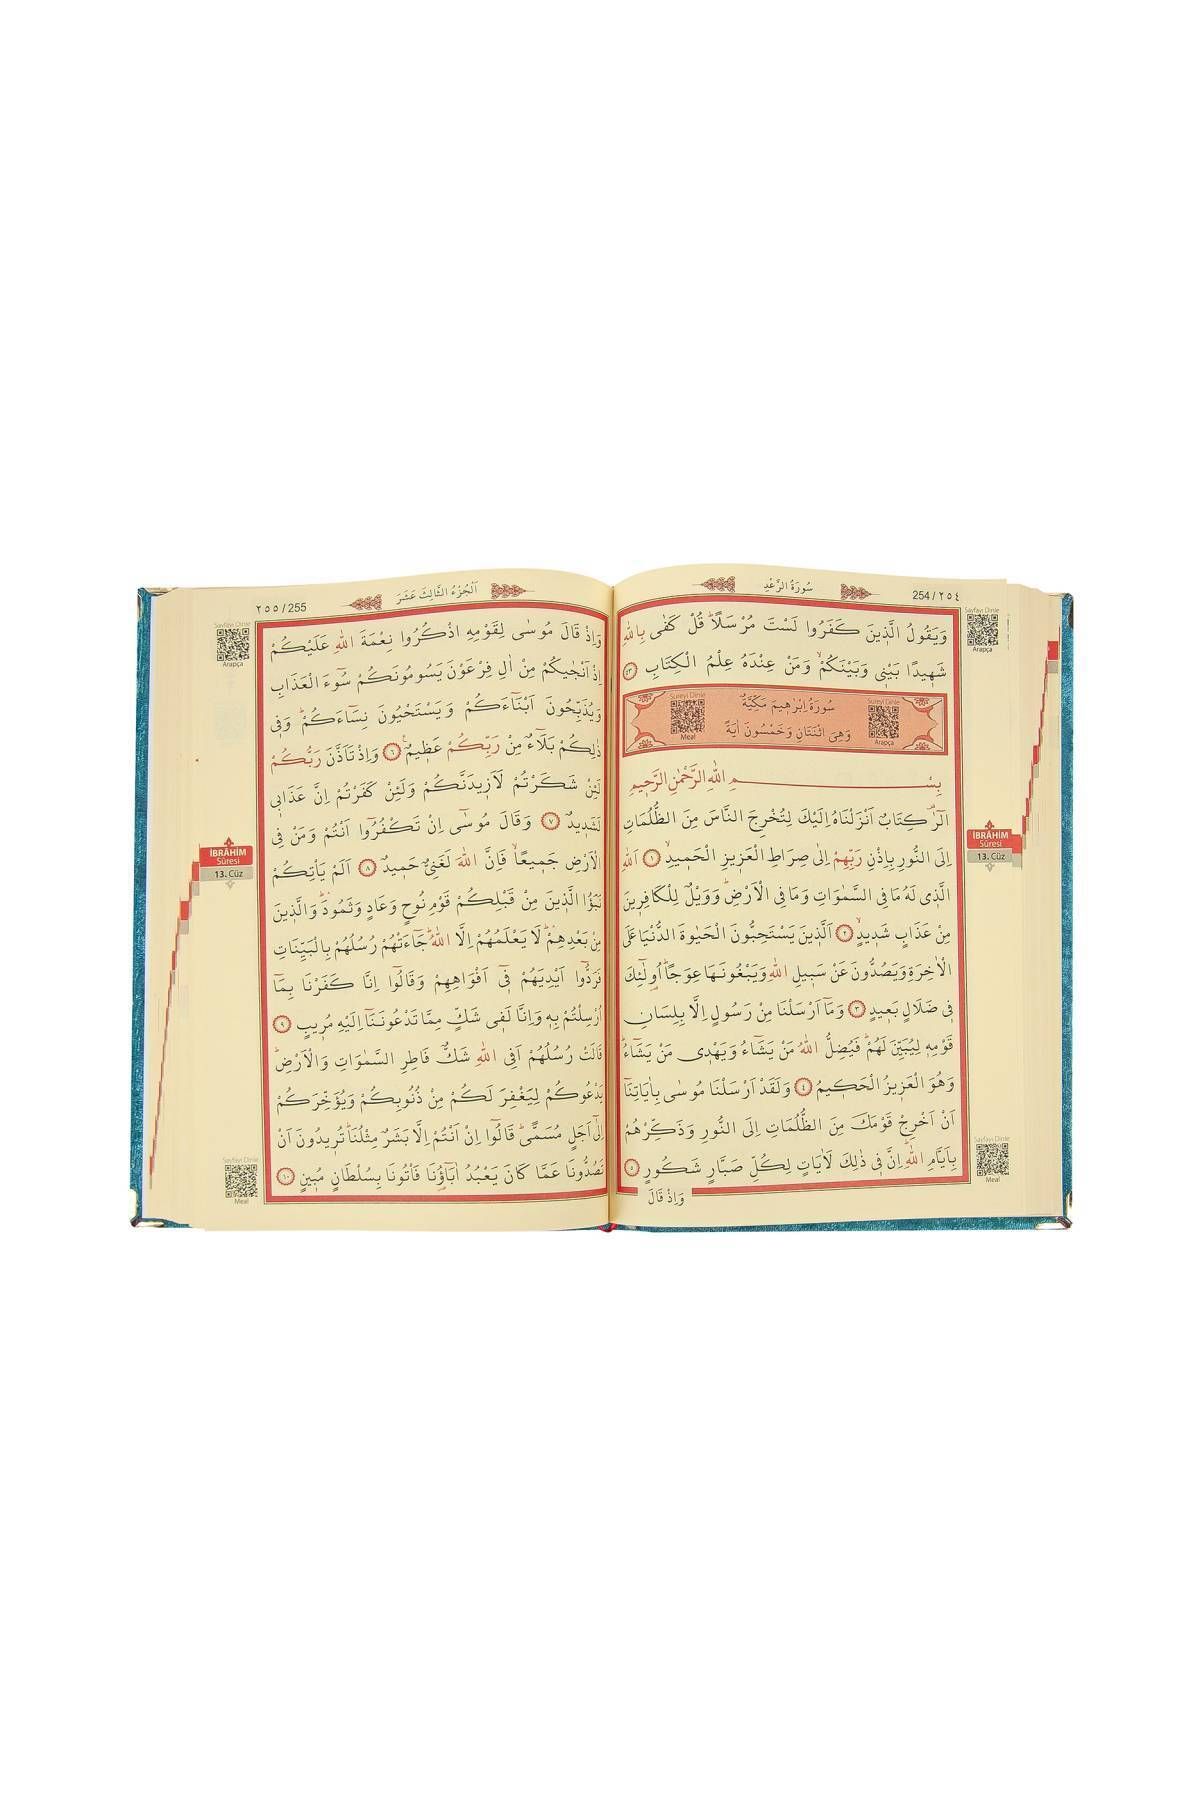 254 / ٢٥٤
سُورَةُ الرَّعْدِ
Sayfayı Dinle
Arapça
وَيَقُولُ الَّذ۪ينَ كَفَرُوا لَسْتَ مُرْسَلًاۜ قُلْ كَفٰى بِاللّٰهِ
شَه۪يدًا بَيْن۪ي وَبَيْنَكُمْۙ وَمَنْ عِنْدَهُ عِلْمُ الْكِتَابِ ٤٣
Sureyi Dinle
Arapça
سُورَةُ اِبْرٰه۪يمَ مَكِّيَّةٌ
وَهِيَ اثْنَتَانِ وَخَمْسُونَ اٰيَةً
Sureyi Dinle
Meal
بِسْمِ اللّٰهِ الرَّحْمٰنِ الرَّح۪يمِ
الٓرٰ۠ كِتَابٌ اَنْزَلْنَاهُ اِلَيْكَ لِتُخْرِجَ النَّاسَ مِنَ الظُّلُمَاتِ
اِلَى النُّورِ بِاِذْنِ رَبِّهِمْ اِلٰى صِرَاطِ الْعَز۪يزِ الْحَم۪يدِۙ ١ اَللّٰهِ
الَّذ۪ي لَهُ مَا فِي السَّمٰوَاتِ وَمَا فِي الْاَرْضِۜ وَوَيْلٌ لِلْكَافِر۪ينَ
مِنْ عَذَابٍ شَد۪يدٍۙ ٢ اَلَّذ۪ينَ يَسْتَحِبُّونَ الْحَيٰوةَ الدُّنْيَا عَلَى
الْاٰخِرَةِ وَيَصُدُّونَ عَنْ سَب۪يلِ اللّٰهِ وَيَبْغُونَهَا عِوَجًاۜ اُو۬لٰٓئِكَ
ف۪ي ضَلَالٍ بَع۪يدٍ ٣ وَمَٓا اَرْسَلْنَا مِنْ رَسُولٍ اِلَّا بِلِسَانِ
قَوْمِه۪ لِيُبَيِّنَ لَهُمْۜ فَيُضِلُّ اللّٰهُ مَنْ يَشَٓاءُ وَيَهْد۪ي مَنْ يَشَٓاءُۜ
وَهُوَ الْعَز۪يزُ الْحَك۪يمُ ٤ وَلَقَدْ اَرْسَلْنَا مُوسٰى بِاٰيَاتِنَٓا
اَنْ اَخْرِجْ قَوْمَكَ مِنَ الظُّلُمَاتِ اِلَى النُّورِ وَذَكِّرْهُمْ
بِاَيَّامِ اللّٰهِۜ اِنَّ ف۪ي ذٰلِكَ لَاٰيَاتٍ لِكُلِّ صَبَّارٍ شَكُورٍ ٥
وَاِذْ قَالَ
İBRÂHİM
Sûresi
13. Cüz
Sayfayı Dinle
Meal
اَلْجُزْءُ الثَّالِثَ عَشَرَ
٢٥٥ / 255
Sayfayı Dinle
Arapça
وَاِذْ قَالَ مُوسٰى لِقَوْمِهِ اذْكُرُوا نِعْمَةَ اللّٰهِ عَلَيْكُمْ
اِذْ اَنْجٰيكُمْ مِنْ اٰلِ فِرْعَوْنَ يَسُومُونَكُمْ سُٓوءَ الْعَذَابِ
وَيُذَبِّحُونَ اَبْنَٓاءَكُمْ وَيَسْتَحْيُونَ نِسَٓاءَكُمْۜ وَف۪ي
ذٰلِكُمْ بَلَٓاءٌ مِنْ رَبِّكُمْ عَظ۪يمٌ۟ ٦ وَاِذْ تَاَذَّنَ رَبُّكُمْ
لَئِنْ شَكَرْتُمْ لَاَز۪يدَنَّكُمْ وَلَئِنْ كَفَرْتُمْ اِنَّ عَذَاب۪ي
لَشَد۪يدٌ ٧ وَقَالَ مُوسٰٓى اِنْ تَكْفُرُٓوا اَنْتُمْ وَمَنْ فِي
الْاَرْضِ جَم۪يعًاۙ فَاِنَّ اللّٰهَ لَغَنِيٌّ حَم۪يدٌ ٨ اَلَمْ يَأْتِكُمْ
نَبَؤُا الَّذ۪ينَ مِنْ قَبْلِكُمْ قَوْمِ نُوحٍ وَعَادٍ وَثَمُودَۜ وَالَّذ۪ينَ
مِنْ بَعْدِهِمْۜ لَا يَعْلَمُهُمْ اِلَّا اللّٰهُۜ جَٓاءَتْهُمْ رُسُلُهُمْ بِالْبَيِّنَاتِ
فَرَدُّٓوا اَيْدِيَهُمْ ف۪ٓي اَفْوَاهِهِمْ وَقَالُٓوا اِنَّا كَفَرْنَا بِمَٓا
اُرْسِلْتُمْ بِه۪ وَاِنَّا لَف۪ي شَكٍّ مِمَّا تَدْعُونَنَٓا اِلَيْهِ مُر۪يبٍ ٩
قَالَتْ رُسُلُهُمْ اَفِي اللّٰهِ شَكٌّ فَاطِرِ السَّمٰوَاتِ وَالْاَرْضِۜ
يَدْعُوكُمْ لِيَغْفِرَ لَكُمْ مِنْ ذُنُوبِكُمْ وَيُؤَخِّرَكُمْ
اِلٰٓى اَجَلٍ مُسَمًّىۜ قَالُٓوا اِنْ اَنْتُمْ اِلَّا بَشَرٌ مِثْلُنَاۜ تُر۪يدُونَ اَنْ
تَصُدُّونَا عَمَّا كَانَ يَعْبُدُ اٰبَٓاؤُ۬نَا فَأْتُونَا بِسُلْطَانٍ مُب۪ينٍ ١٠
İBRÂHİM
Sûresi
13. Cüz
Sayfayı Dinle
Meal